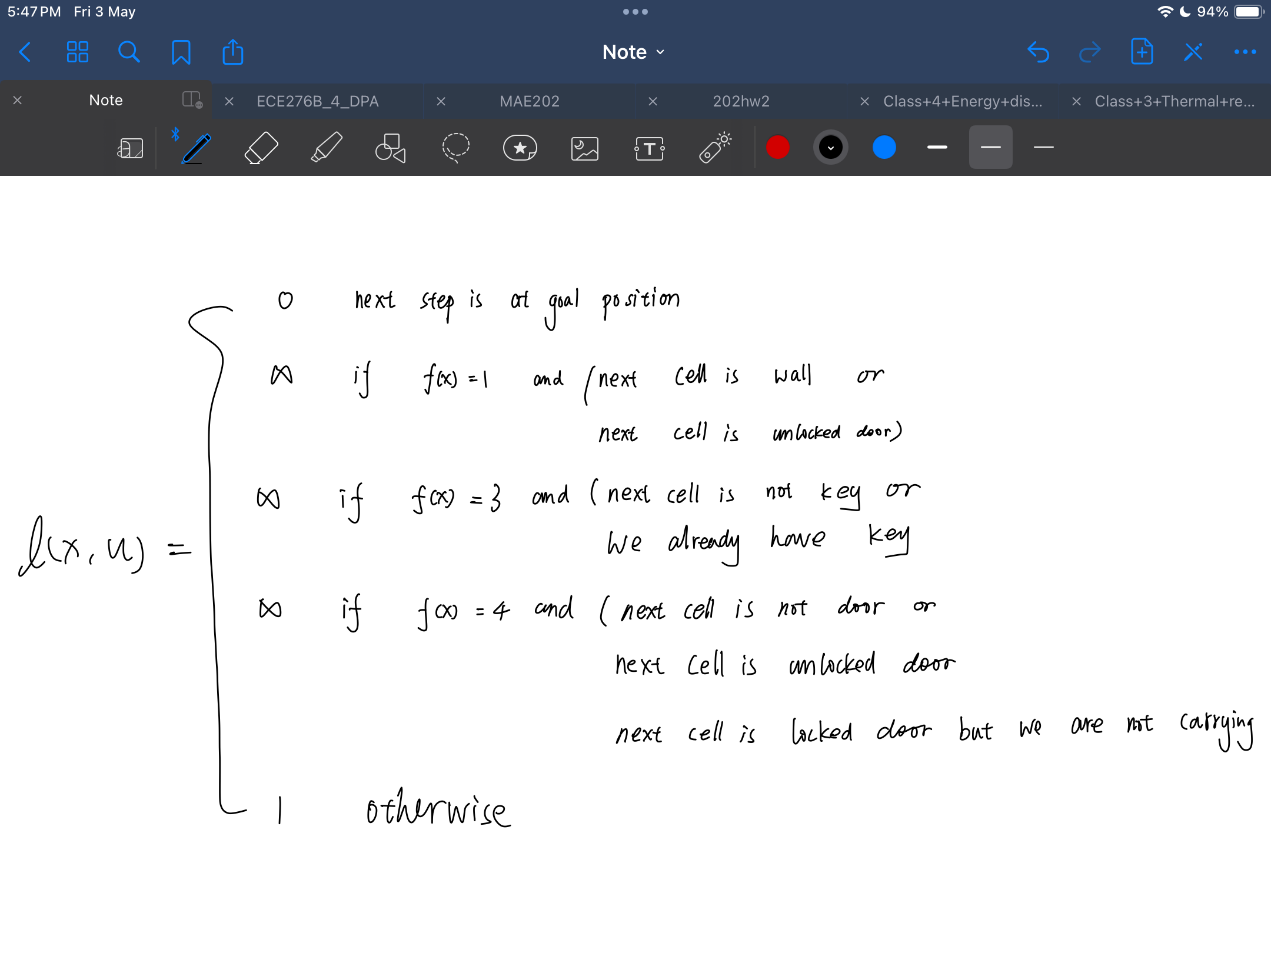 5:47 PM Fri 3 May
94%
Note
Note
ECE276B_4_DPA
MAE202
202hw2
Class+4+Energy+dis...
Class+3+Thermal+re...
T
0 next step is at goal position
∞ if f(x) = 1 and (next cell is wall or
next cell is unlocked door)
∞ if f(x) = 3 and (next cell is not key or
we already have key
l(x, u) =
∞ if f(x) = 4 and (next cell is not door or
next cell is unlocked door
next cell is locked door but we are not carrying
1 otherwise